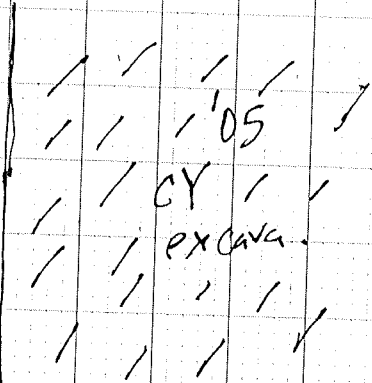 '05
CY
excava.